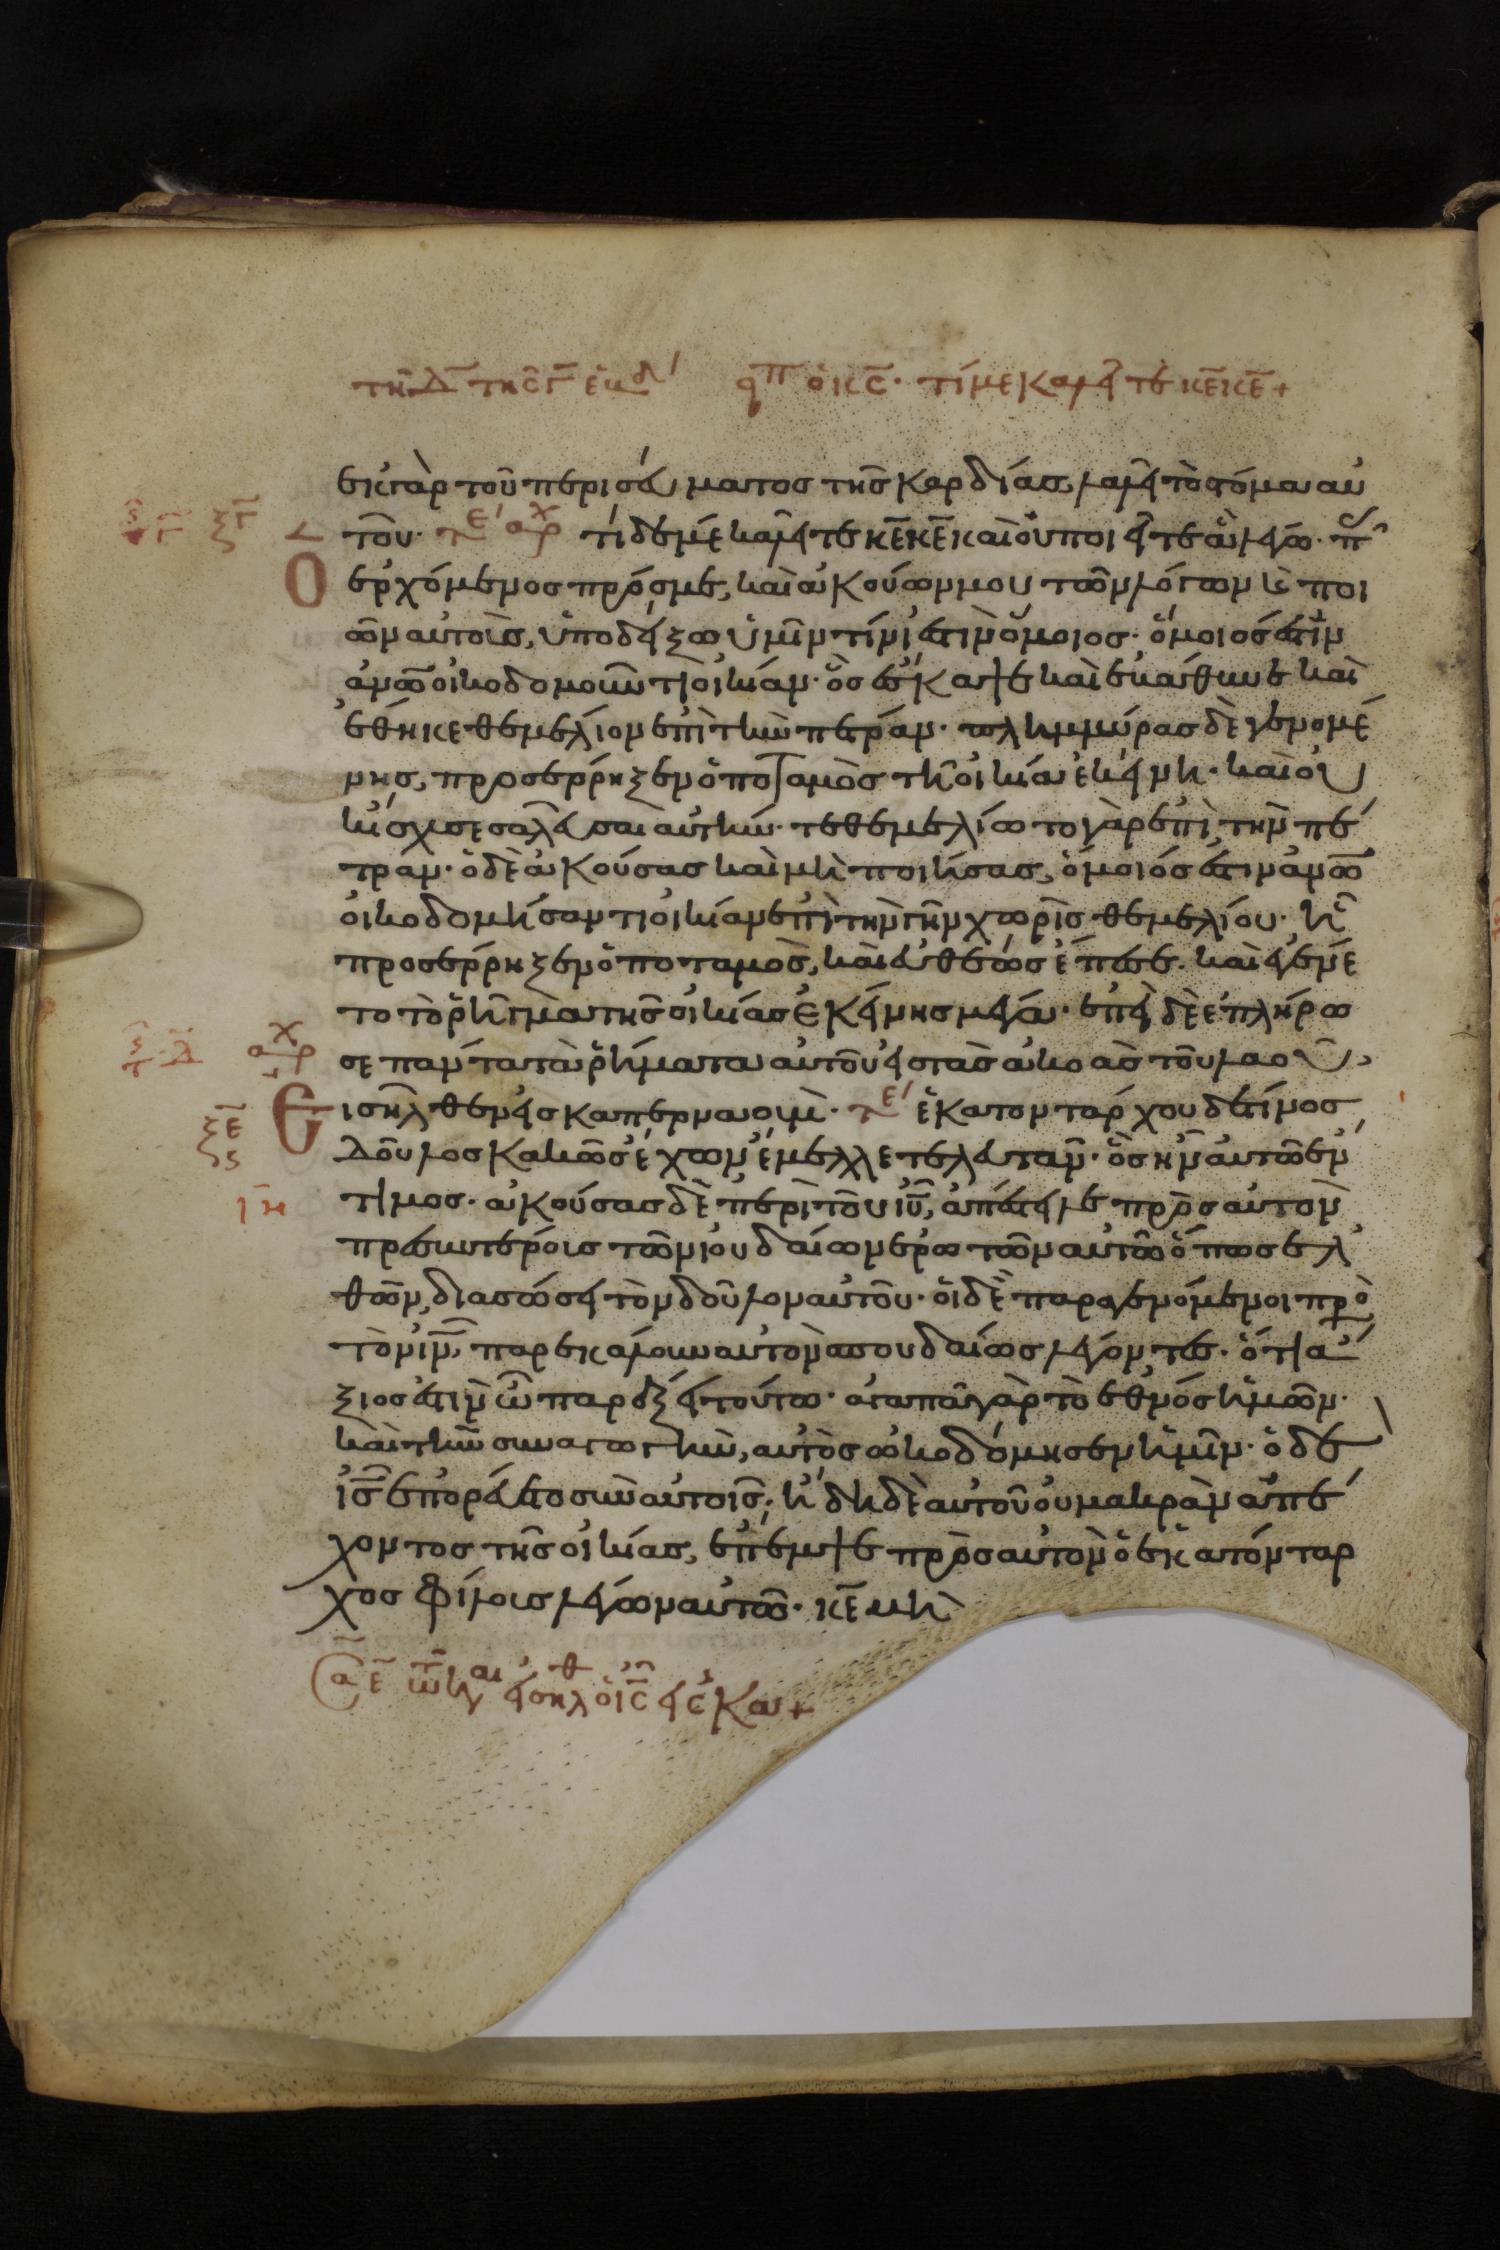 τῆ Δ τῆς Γ ἑβδ εἶπ ὁ κς· τί με καλεῖτε κε κε +
ἐκ γὰρ τοῦ περισεύματος τῆς καρδίας, λαλεῖ τὸ στόμα αὐ
τοῦ· τε αρχ τί δέ με καλεῖτε κε κε καὶ οὐ ποιεῖτε ἃ λέγω· πᾶς
ξγ Ο ἐρχόμενος πρός με, καὶ ἀκούων μου τῶν λόγων καὶ ποι
ῶν αὐτοὺς, ὑποδείξω ὑμῖν τίνι ἐστὶν ὅμοιος· ὅμοιός ἐστιν
ἀνῶ οἰκοδομοῦντι οἰκίαν· ὃς ἔσκαψε καὶ ἐβάθυνε καὶ
ἔθηκε θεμέλιον ἐπὶ τὴν πέτραν· πλημμύρας δὲ γενομέ
νης, προσέρρηξεν ὁ ποταμὸς τῆ οἰκία ἐκείνη· καὶ οὐ
κ ἴσχυσε σαλεῦσαι αὐτήν· τεθεμελίωτο γὰρ ἐπὶ τὴν πέ
τραν· ὁ δὲ ἀκούσας καὶ μὴ ποιήσας, ὅμοιός ἐστιν ἀνῶ
οἰκοδομήσαντι οἰκίαν ἐπὶ τὴν γῆν χωρὶς θεμελίου· ἧ
προσέρρηξεν ὁ ποταμὸς, καὶ εὐθέως ἔπεσε· καὶ ἐγένε
το τὸ ῥῆγμα τῆς οἰκίας ἐκείνης μέγα· ἐπεὶ δὲ ἐπλήρω
αρχ σε πάντα τὰ ῥήματα αὐτοῦ εἰς τὰς ἀκοὰς τοῦ λαοῦ,
ξε Εἰσῆλθεν εἰς καπερναούμ· τε ἑκατοντάρχου δέ τινος
δοῦλος κακῶς ἔχων ἔμελλε τελευτᾶν· ὃς ἦν αὐτῶ ἔν
ιη τιμος· ἀκούσας δὲ περὶ τοῦ ιυ, ἀπέστειλε πρὸς αὐτὸν
πρεσβυτέροις τῶν ἰουδαίων ἐρωτῶν αὐτῶ ὅπως ἐλ
θῶν, διασώσει τὸν δοῦλον αὐτοῦ· οἱ δὲ παραγενόμενοι πρὸ
τὸν ιν, παρεκάλουν αὐτὸν σπουδαίως λέγοντες· ὅτι ἄ
ξιος ἐστὶν ὧ παρέξει τούτω· ἀγαπᾶ γὰρ τὸ ἔθνος ἡμῶν·
καὶ τὴν συναγωγὴν, αὐτὸς ὠκοδόμησεν ἡμῖν· ὁ δὲ
ις ἐπορεύετο σὺν αὐτοῖς· ἤδη δὲ αὐτοῦ οὐ μακρὰν ἀπέ
χοντος τῆς οἰκίας, ἔπεμψε πρὸς αὐτὸν ὁ ἑκατόνταρ
χος φίλοις λέγων αὐτῶ· κε μὴ
εἰσῆλθ ὁ ις εἰς κα +